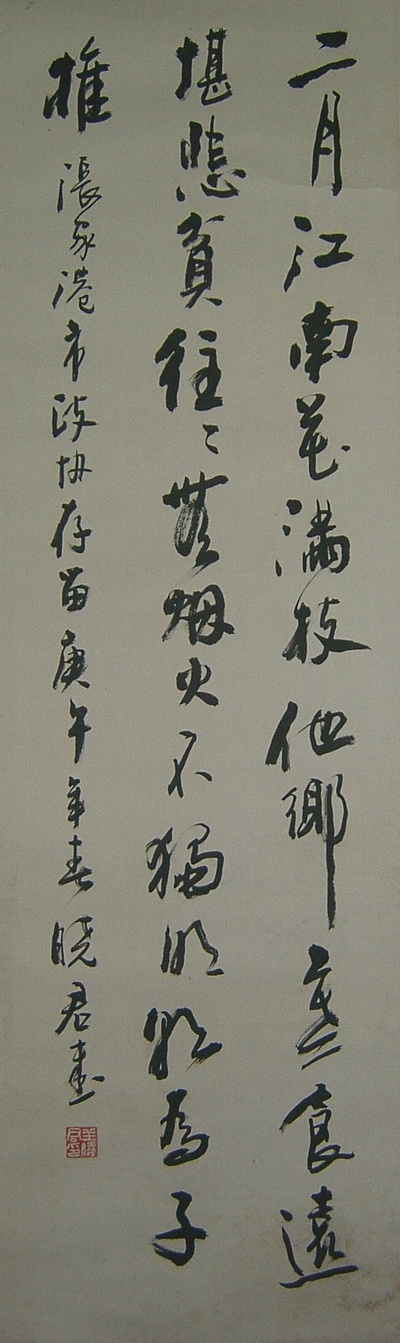 二月江南花滿枝他鄉寒食遠
堪悲貧往〻無烟火不獨明朝為子
推 張家港市政协存留庚午年春晓君書